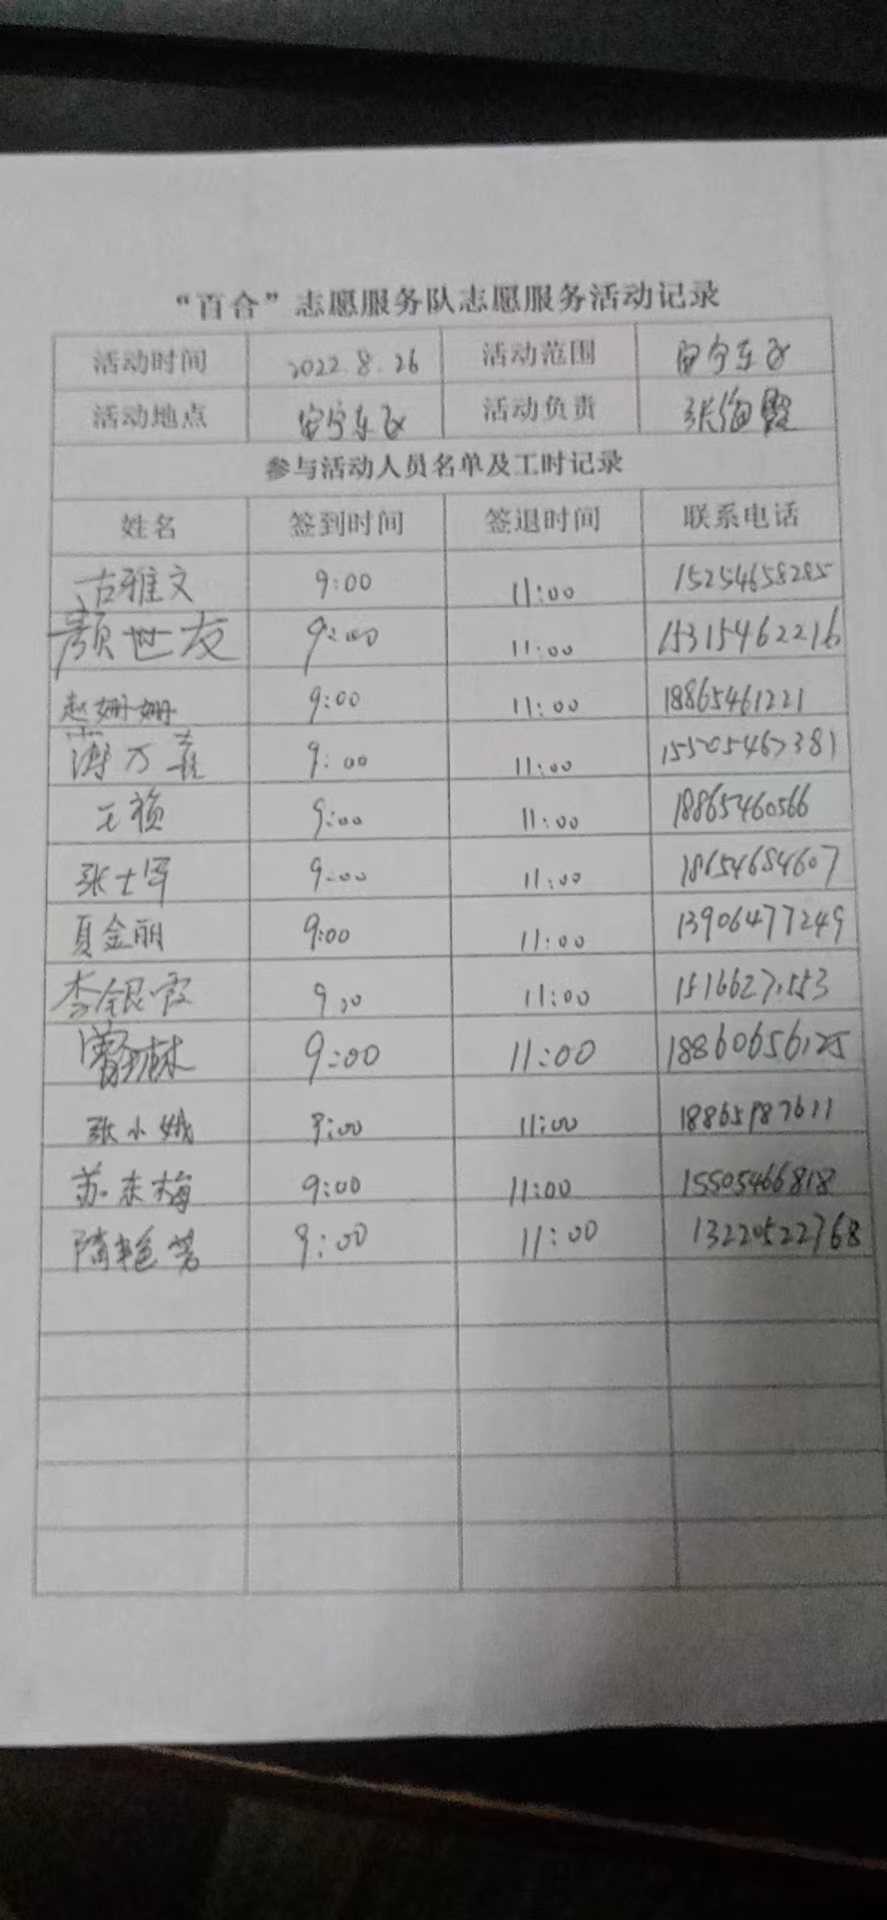 “百合”志愿服务队志愿服务活动记录
活动时间 2022.8.26 活动范围 安宁东区
活动地点 安宁东区 活动负责 张海霞
参与活动人员名单及工时记录
姓名 签到时间 签退时间 联系电话
古雅文 9:00 11:00 15254658285
颜世友 9:00 11:00 15315462216
赵姗姗 9:00 11:00 18865461221
薄万喜 9:00 11:00 15505467381
王祯 9:00 11:00 18865460566
张士军 9:00 11:00 18654684607
夏金丽 9:00 11:00 13906477249
李银霞 11:00
9:00 11:00 18860656125
张小娥 9:00 11:00 18865187611
苏东梅 9:00 11:00 15505466818
隋艳芳 9:00 11:00 13220522768